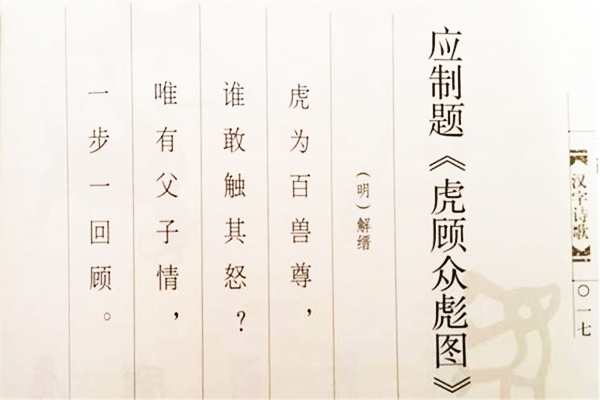 应制题《虎顾众彪图》
(明)解缙
虎为百兽尊，
谁敢触其怒？
唯有父子情，
一步一回顾。
汉字诗歌
〇一七